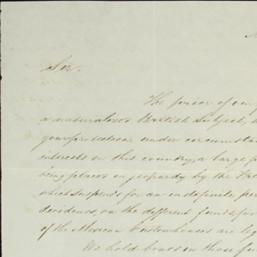 Sir.
The power of our
a natural born British Subject,
your protection under circumstan
interests in this country, a large p
being placed in jeopardy by the
which suspends for an indefinite per
dividends, on the different funds, for
of the Mexican Customhouses are leg
We hold bonds in those fun